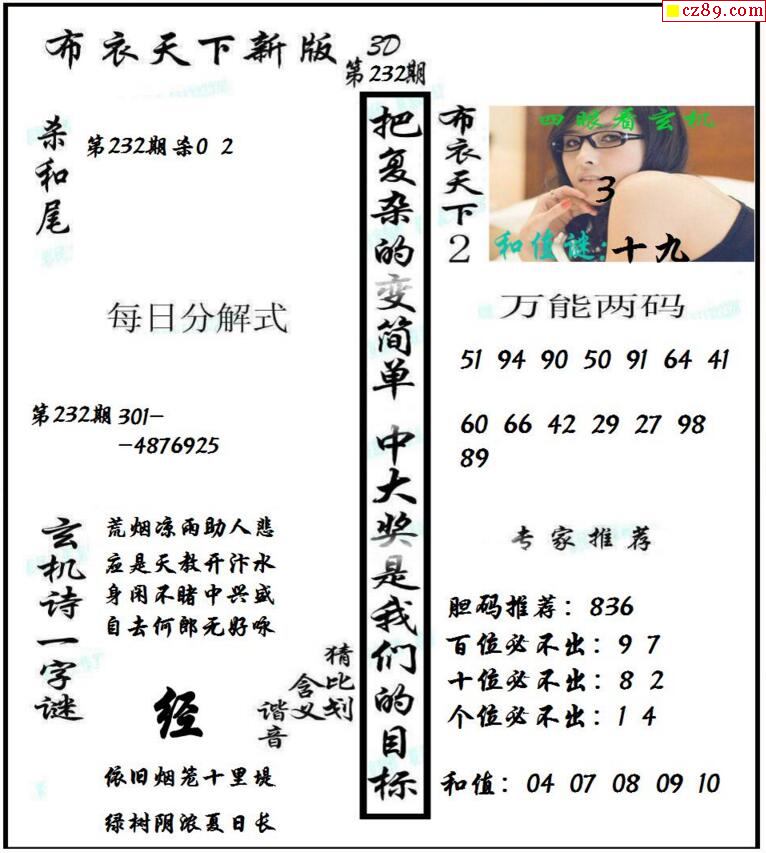 cz89.com
布衣天下新版
3D
第232期
杀和尾
第232期杀0 2
每日分解式
第232期301-
-4876925
玄机诗一字谜
荒烟凉雨助人悲
应是天教开汴水
身闲不睹中兴盛
自去何郎无好咏
经
猜比划
含义
谐音
依旧烟笼十里堤
绿树阴浓夏日长
把复杂的变简单 中大奖是我们的目标
布衣天下2
四眼看玄机
3
和值谜:十九
万能两码
51 94 90 50 91 64 41
60 66 42 29 27 98
89
专家推荐
胆码推荐：836
百位必不出：9 7
十位必不出：8 2
个位必不出：1 4
和值：04 07 08 09 10